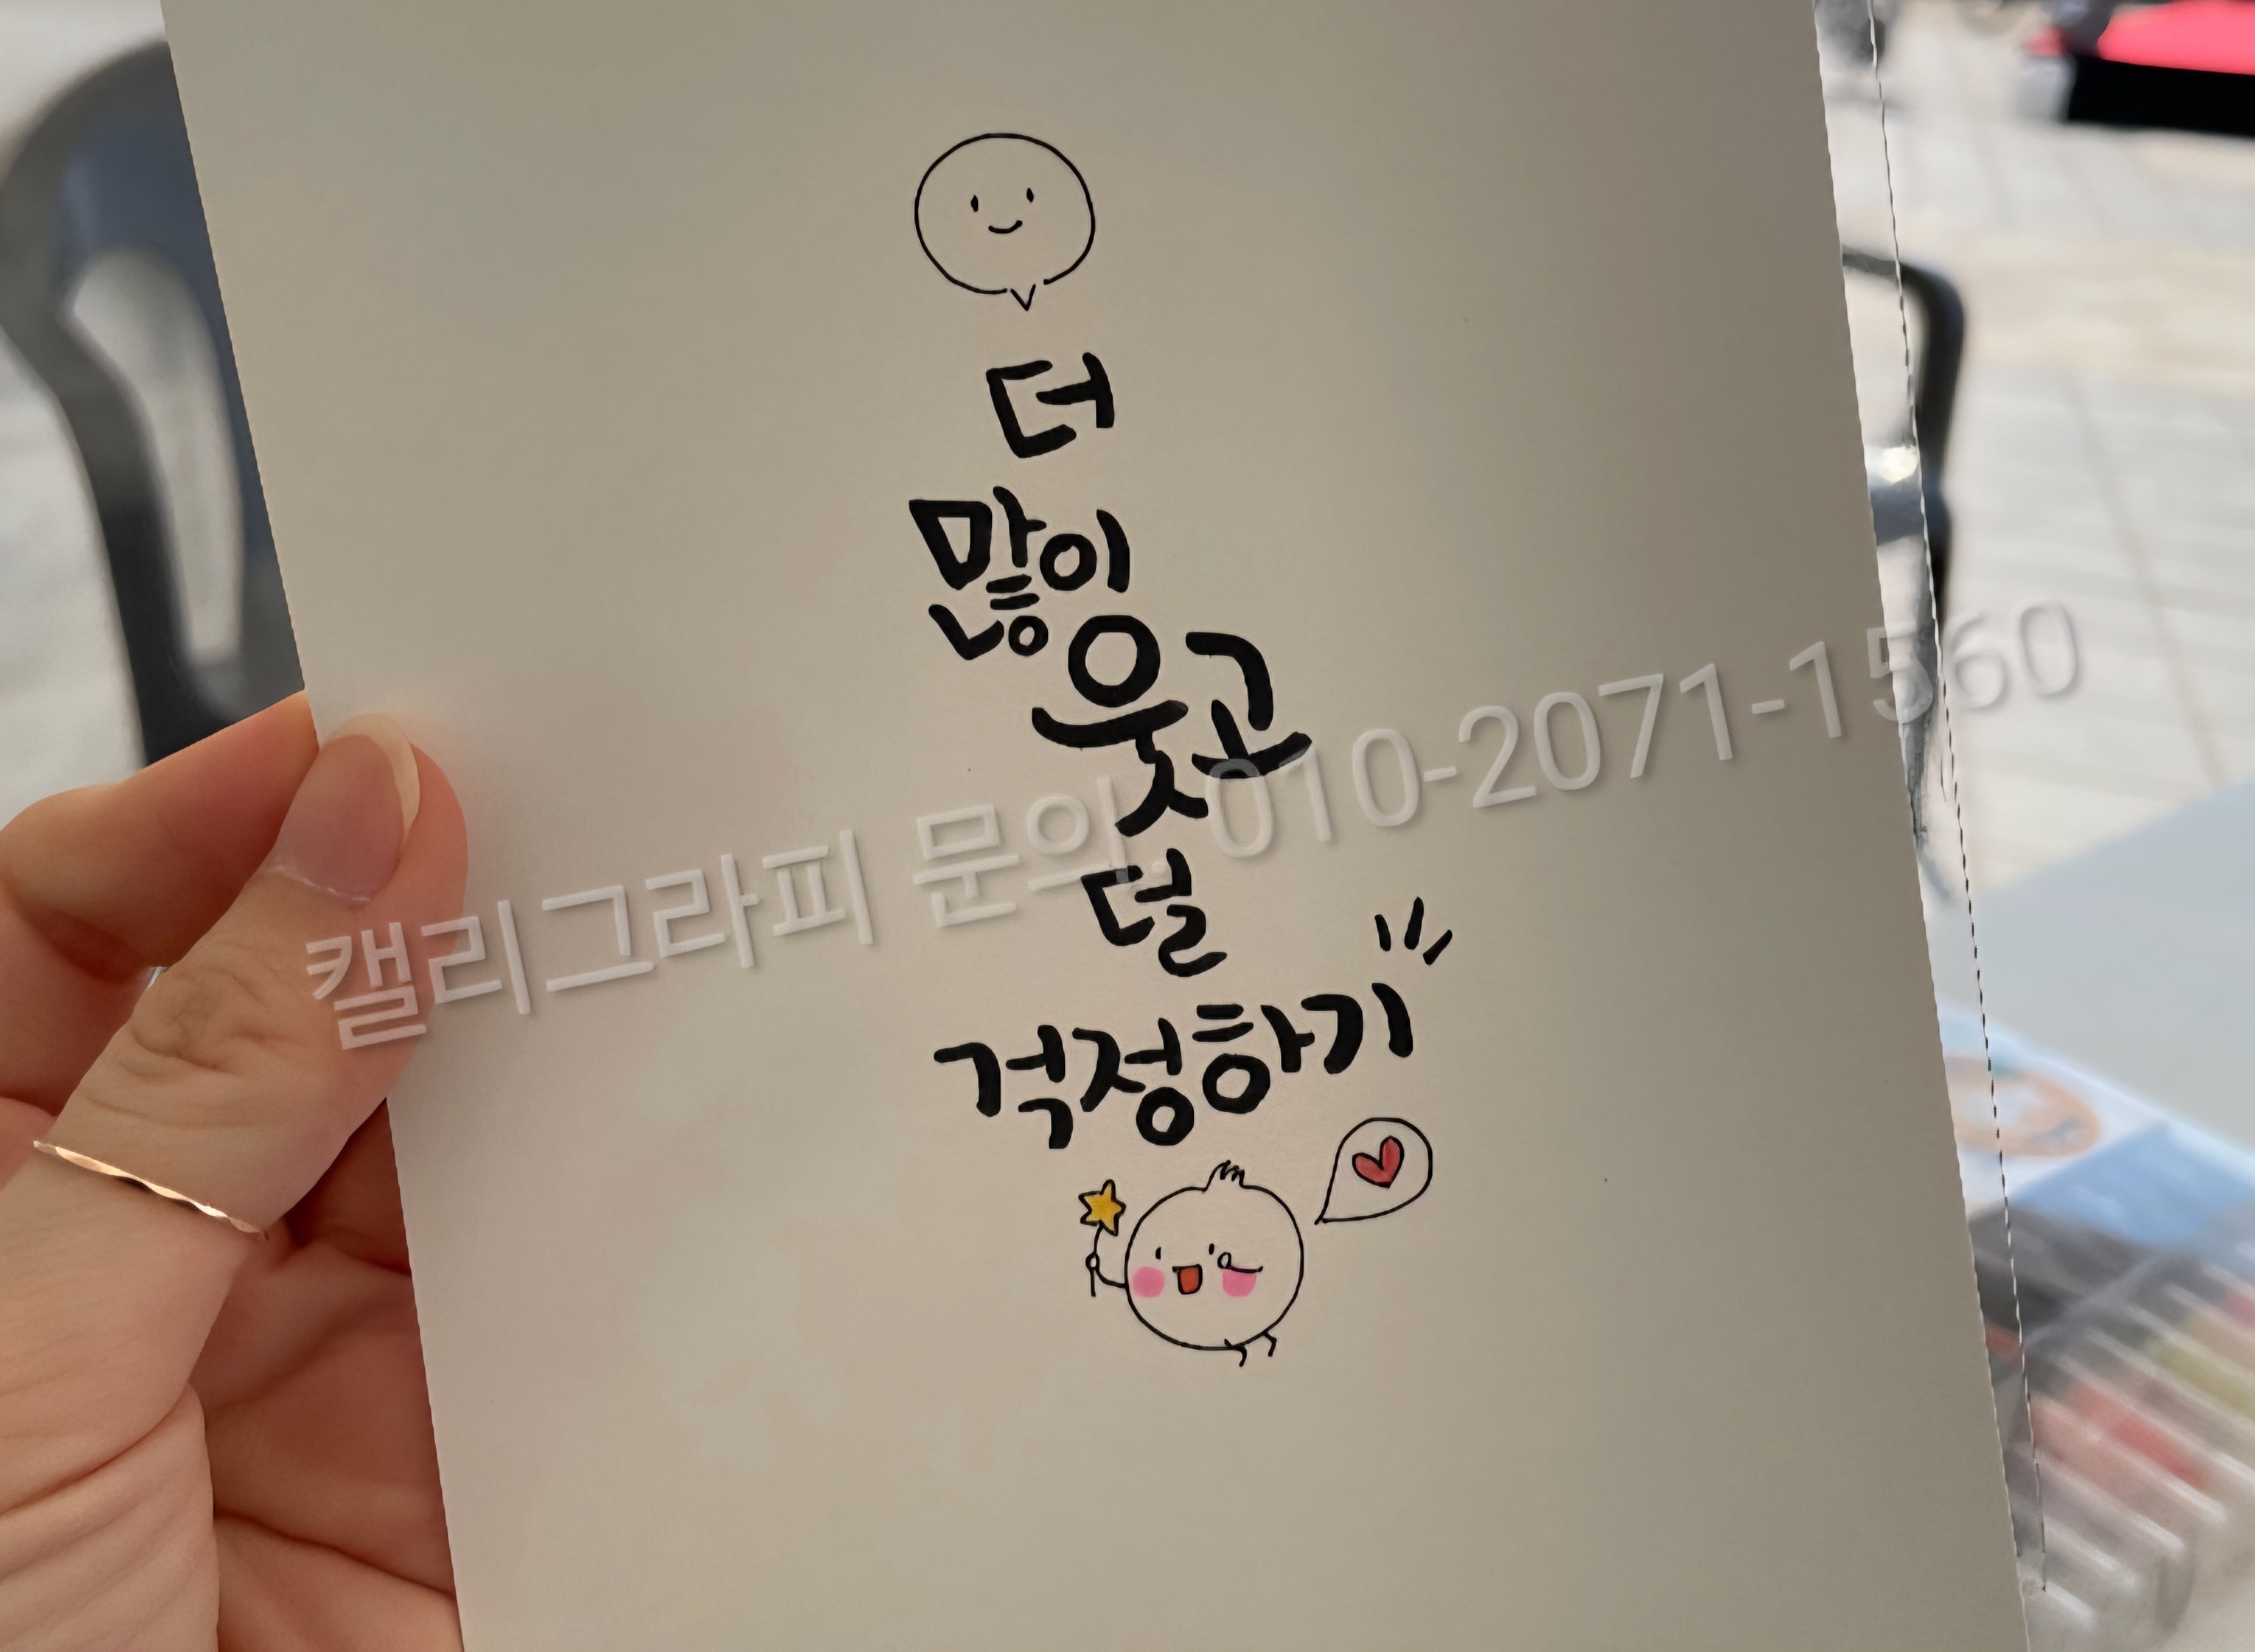 더
많이
웃고
덜
걱정하기
캘리그라피 문의. 010-2071-1560